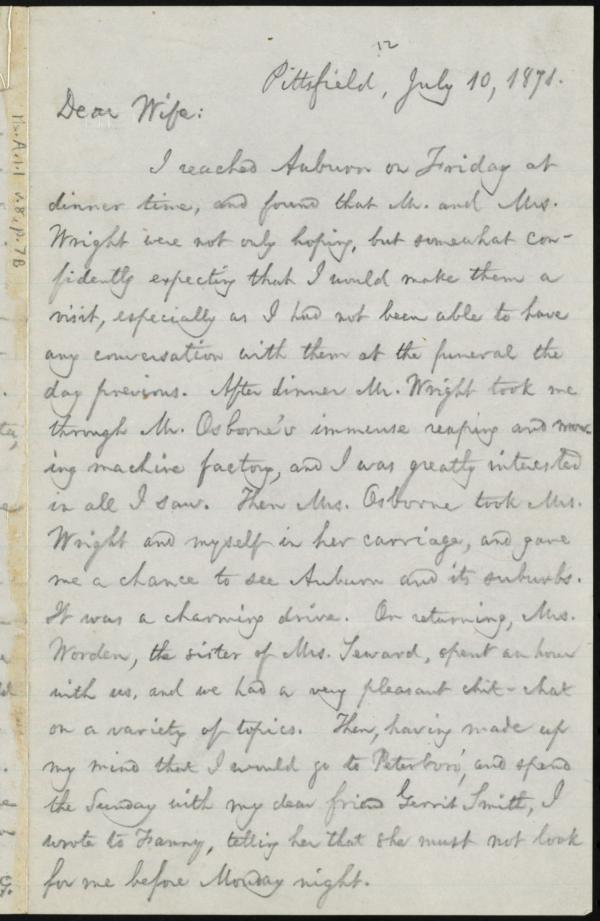 12
Pittsfield, July 10, 1871.
Dear Wife:
I reached Auburn on Friday at
dinner time, and found that Mr. and Mrs.
Wright were not only hoping, but somewhat con-
fidently expecting that I would make them a
visit, especially as I had not been able to have
any conversation with them at the funeral the
day previous. After dinner Mr. Wright took me
through Mr. Osborne's immense reaping and mow-
ing machine factory, and I was greatly interested
in all I saw. Then Mrs. Osborne took Mrs.
Wright and myself in her carriage, and gave
me a chance to see Auburn and its suburbs.
It was a charming drive. On returning, Mrs.
Worden, the sister of Mrs. Seward, spent an hour
with us, and we had a very pleasant chit-chat
on a variety of topics. Then, having made up
my mind that I would go to Peterboro', and spend
the Sunday with my dear friend Gerrit Smith, I
wrote to Fanny, telling her that she must not look
for me before Monday night.
Ms.A.1.1 v.8, p.7B